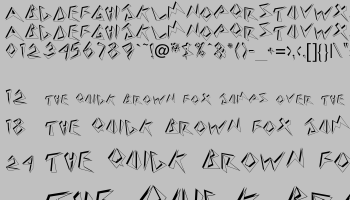 ABCDEFGHIJKLMNOPQRSTUVWX
ABCDEFGHIJKLMNOPQRSTUVWX
0123456789
12 THE QUICK BROWN FOX JUMPS OVER THE
18 THE QUICK BROWN FOX JUM
24 THE QUICK BROWN FO